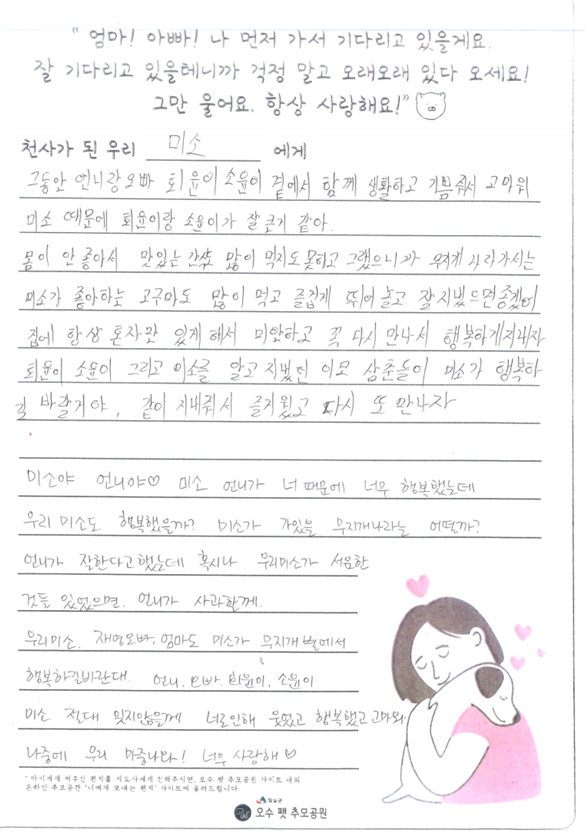 “ 엄마! 아빠! 나 먼저 가서 기다리고 있을게요.
잘 기다리고 있을테니까 걱정 말고 오래오래 있다 오세요!
그만 울어요. 항상 사랑해요!”
천사가 된 우리 미소 에게
그동안 언니랑오빠 희윤이 소윤이 곁에서 함께 생활하고 기쁨줘서 고마워
미소 때문에 희윤이랑 소윤이가 잘 큰거 같아.
몸이 안 좋아서 맛있는 간식도 많이 먹지도 못하고 그랬으니까
미소가 좋아하는 고구마도 많이 먹고 즐겁게 뛰어 놀고 잘지냈으면좋겠어
집에 항상 혼자만 있게 해서 미안하고 꼭 다시 만나서 행복하게지내자
희윤이 소윤이 그리고 미소를 알고 지냈던 이모 삼촌들이 미소가 행복하
길 바랄거야, 같이 지내줘서 즐거웠고 다시 또 만나자
미소야 언니야♡ 미소 언니가 너 때문에 너무 행복했는데
우리 미소도 행복했을까? 미소가 가있을 무지개나라는 어떨까?
언니가 잘한다고했는데 혹시나 우리미소가 서운한
것들 있었으면. 언니가 사과할께.
우리미소. 재영오빠, 엄마도 미소가 무지개 별에서
행복하길바란대. 언니. 오빠. 희윤이, 소윤이
미소 절대 잊지않을께 너로인해 웃었고 행복했고 고마워
나중에 우리 마중나와! 너무 사랑해♡
* 아이에게 써주신 편지를 지도사에게 전해주시면, 오수 펫 추모공원 사이트 내의
온라인 추모공간 "너에게 보내는 편지" 사이트에 올려드립니다
임실군
오수 펫 추모공원